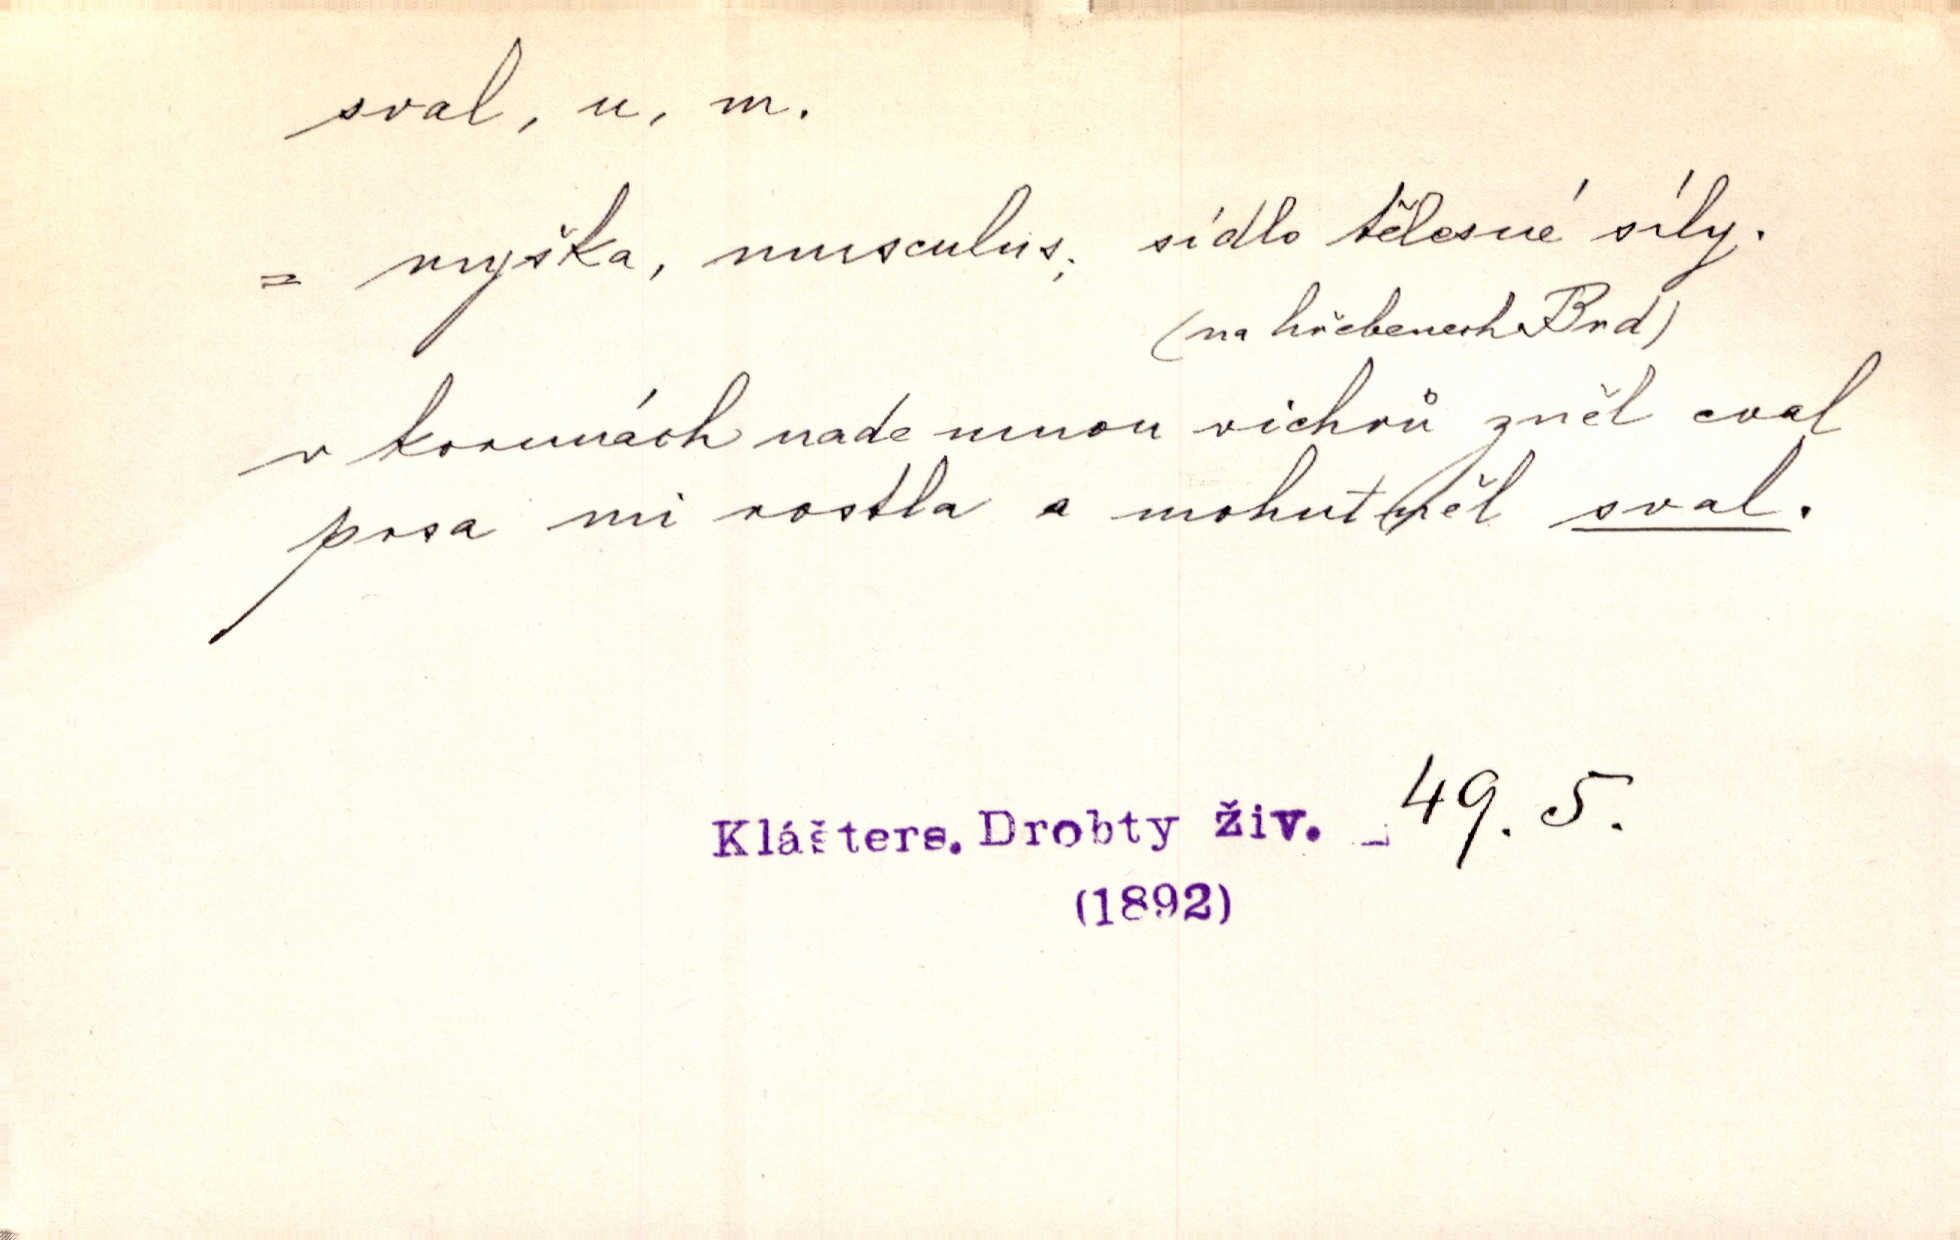 sval, u, m.
= myška, musculus; sídlo tělesné síly.
(na hřebenech Brd)
v korunách nade mnou vichrů zněl cval
prsa mi rostla a mohutněl sval.
Klášters. Drobty živ. 49. 5.
(1892)